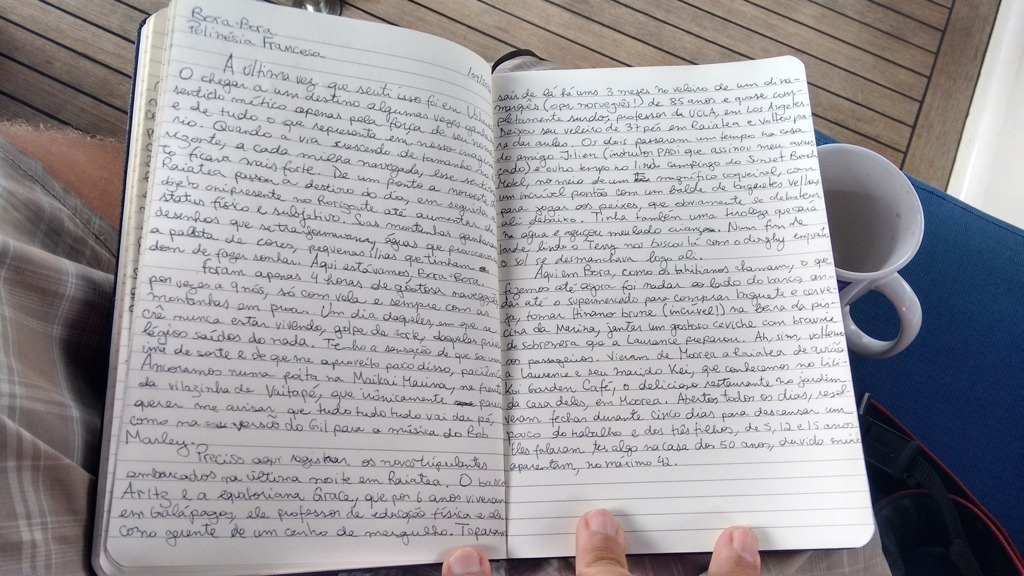 Bora-Bora
Polinésia Francesa
A última vez que senti isso foi em
O chegar a um destino algumas vezes ganha
sentido mítico apenas pela força de seu nome
e de tudo o que representa em nosso imaginá
rio. Quando o via crescendo de tamanho no
rizonte, a cada milha navegada, esse sentido
ficava mais forte. De um ponto a noroeste de
Raiatea passou a destino do dia seguinte,
objeto onipresente no horizonte até aumentar
status físico e subjetivo. Suas montanhas ganharam
desenhos que se transformavam, águas que
a paleta de cores, pequenas ilhas que tinham o
dom de fazer sonhar. Aqui estávamos, Bora-Bora.
Foram apenas 4 horas de gostosa navegação
por vezes a 9 nós, só com vela e sempre com as
montanhas em proa. Um dia daqueles em que se
crê nunca estar vivendo, golpe de sorte, daqueles
légios saídos do nada. Tenho a sensação de que sou um
imã de sorte e de que me aproveito pouco disso, paciência.
Ancoramos numa poita na Maikai Marina, na frente
da vilazinha de Vaitapé, que ironicamente parece
querer me avisar que tudo tudo tudo vai dar pé,
como na versão do Gil para a música do Bob
Marley.
Preciso aqui registrar os novos tripulantes
embarcados na última noite em Raiatea. O basco
Aritz e a equatoriana Grace, que por 6 anos viveram
em Galápagos, ele professor de educação física e ela
como gerente de um centro de mergulho. Toparam
sair de lá há uns 3 meses no veleiro de um dina-
marquês (ops, norueguês!) de 85 anos e quase com-
pletamente surdo, professor da UCLA, em Los Angeles.
Deixou seu veleiro de 37 pés em Raiatea e voltou pa
ra das aulas. Os dois passaram um tempo na casa
do amigo Julien (instrutor PADI que assinou meu avan
çado) e outro tempo no lindo camping do Sunset Beach
Hotel, no meio de um magnífico coqueiral, com
um incrível pontão com um balde de baguetes velhas
para jogar aos peixes, que obviamente se debatem
ali debaixo. Tinha também uma tirolesa que caía
na água e aguçou meu lado criança. Num fim de
tarde lindo o Terry nos buscou lá com o dinghy enquanto
o sol se desmanchava logo ali.
Aqui em Bora, como os tahitianos chamam, o que
fizemos até agora foi nadar ao lado do barco, an
dar até o supermercado para comprar baguete e cerve
ja, tomar Hinano brune (incrível!) na beira da pis
cina da Marina, jantar um gostoso ceviche com brownie
de sobremesa que a Laurence preparou. Ah, sim, voltem
os passageiros. Vieram de Moorea a Raiatea de avião
a Laurence e seu marido Kei, que conhecemos no Lili
Koi Garden Café, o delicioso restaurante no jardim
da casa deles, em Moorea. Abertos todos os dias, resol
veram fechar durante cinco dias para descansar um
pouco do trabalho e dos três filhos, de 5, 12 e 15 anos.
Eles falaram ter algo na casa dos 50 anos, duvido muito
aparentam, no máximo 42.